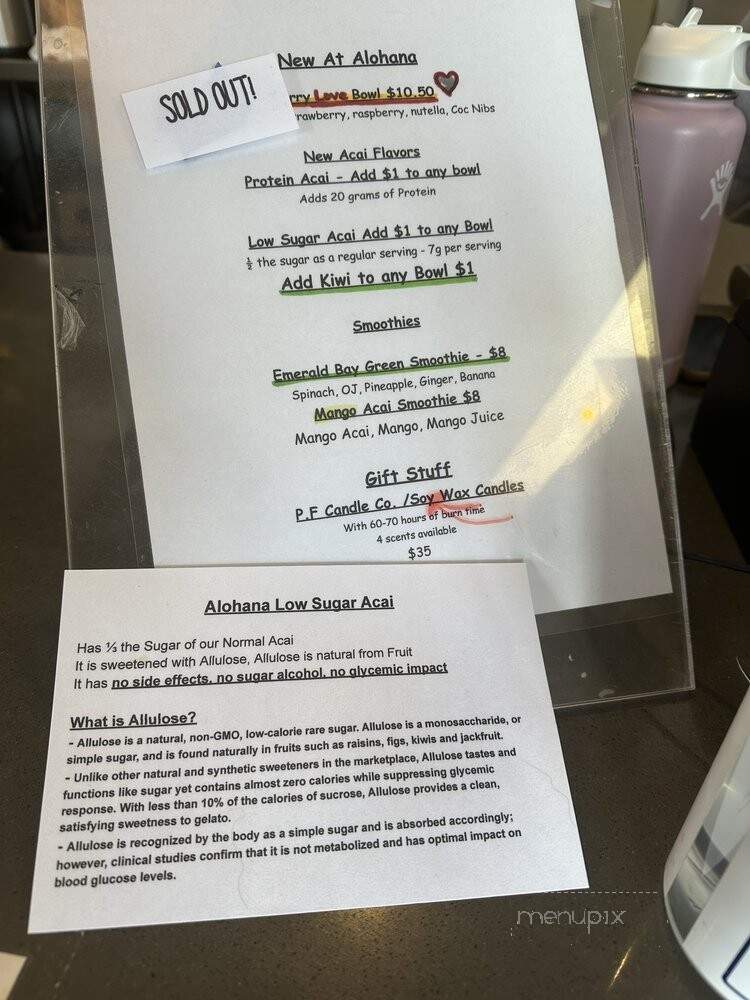 New At Alohana
SOLD OUT!
Love Bowl $10.50
raspberry, nutella, Coc Nibs
New Acai Flavors
Protein Acai - Add $1 to any bowl
Adds 20 grams of Protein
Low Sugar Acai Add $1 to any Bowl
½ the sugar as a regular serving - 7g per serving
Add Kiwi to any Bowl $1
Smoothies
Emerald Bay Green Smoothie - $8
Spinach, OJ, Pineapple, Ginger, Banana
Mango Acai Smoothie $8
Mango Acai, Mango, Mango Juice
Gift Stuff
P.F Candle Co. /Soy Wax Candles
With 60-70 hours of burn time
4 scents available
$35
Alohana Low Sugar Acai
Has ⅓ the Sugar of our Normal Acai
It is sweetened with Allulose, Allulose is natural from Fruit
It has no side effects, no sugar alcohol, no glycemic impact
What is Allulose?
- Allulose is a natural, non-GMO, low-calorie rare sugar. Allulose is a monosaccharide, or
simple sugar, and is found naturally in fruits such as raisins, figs, kiwis and jackfruit.
- Unlike other natural and synthetic sweeteners in the marketplace, Allulose tastes and
functions like sugar yet contains almost zero calories while suppressing glycemic
response. With less than 10% of the calories of sucrose, Allulose provides a clean,
satisfying sweetness to gelato.
- Allulose is recognized by the body as a simple sugar and is absorbed accordingly;
however, clinical studies confirm that it is not metabolized and has optimal impact on
blood glucose levels.
menupix